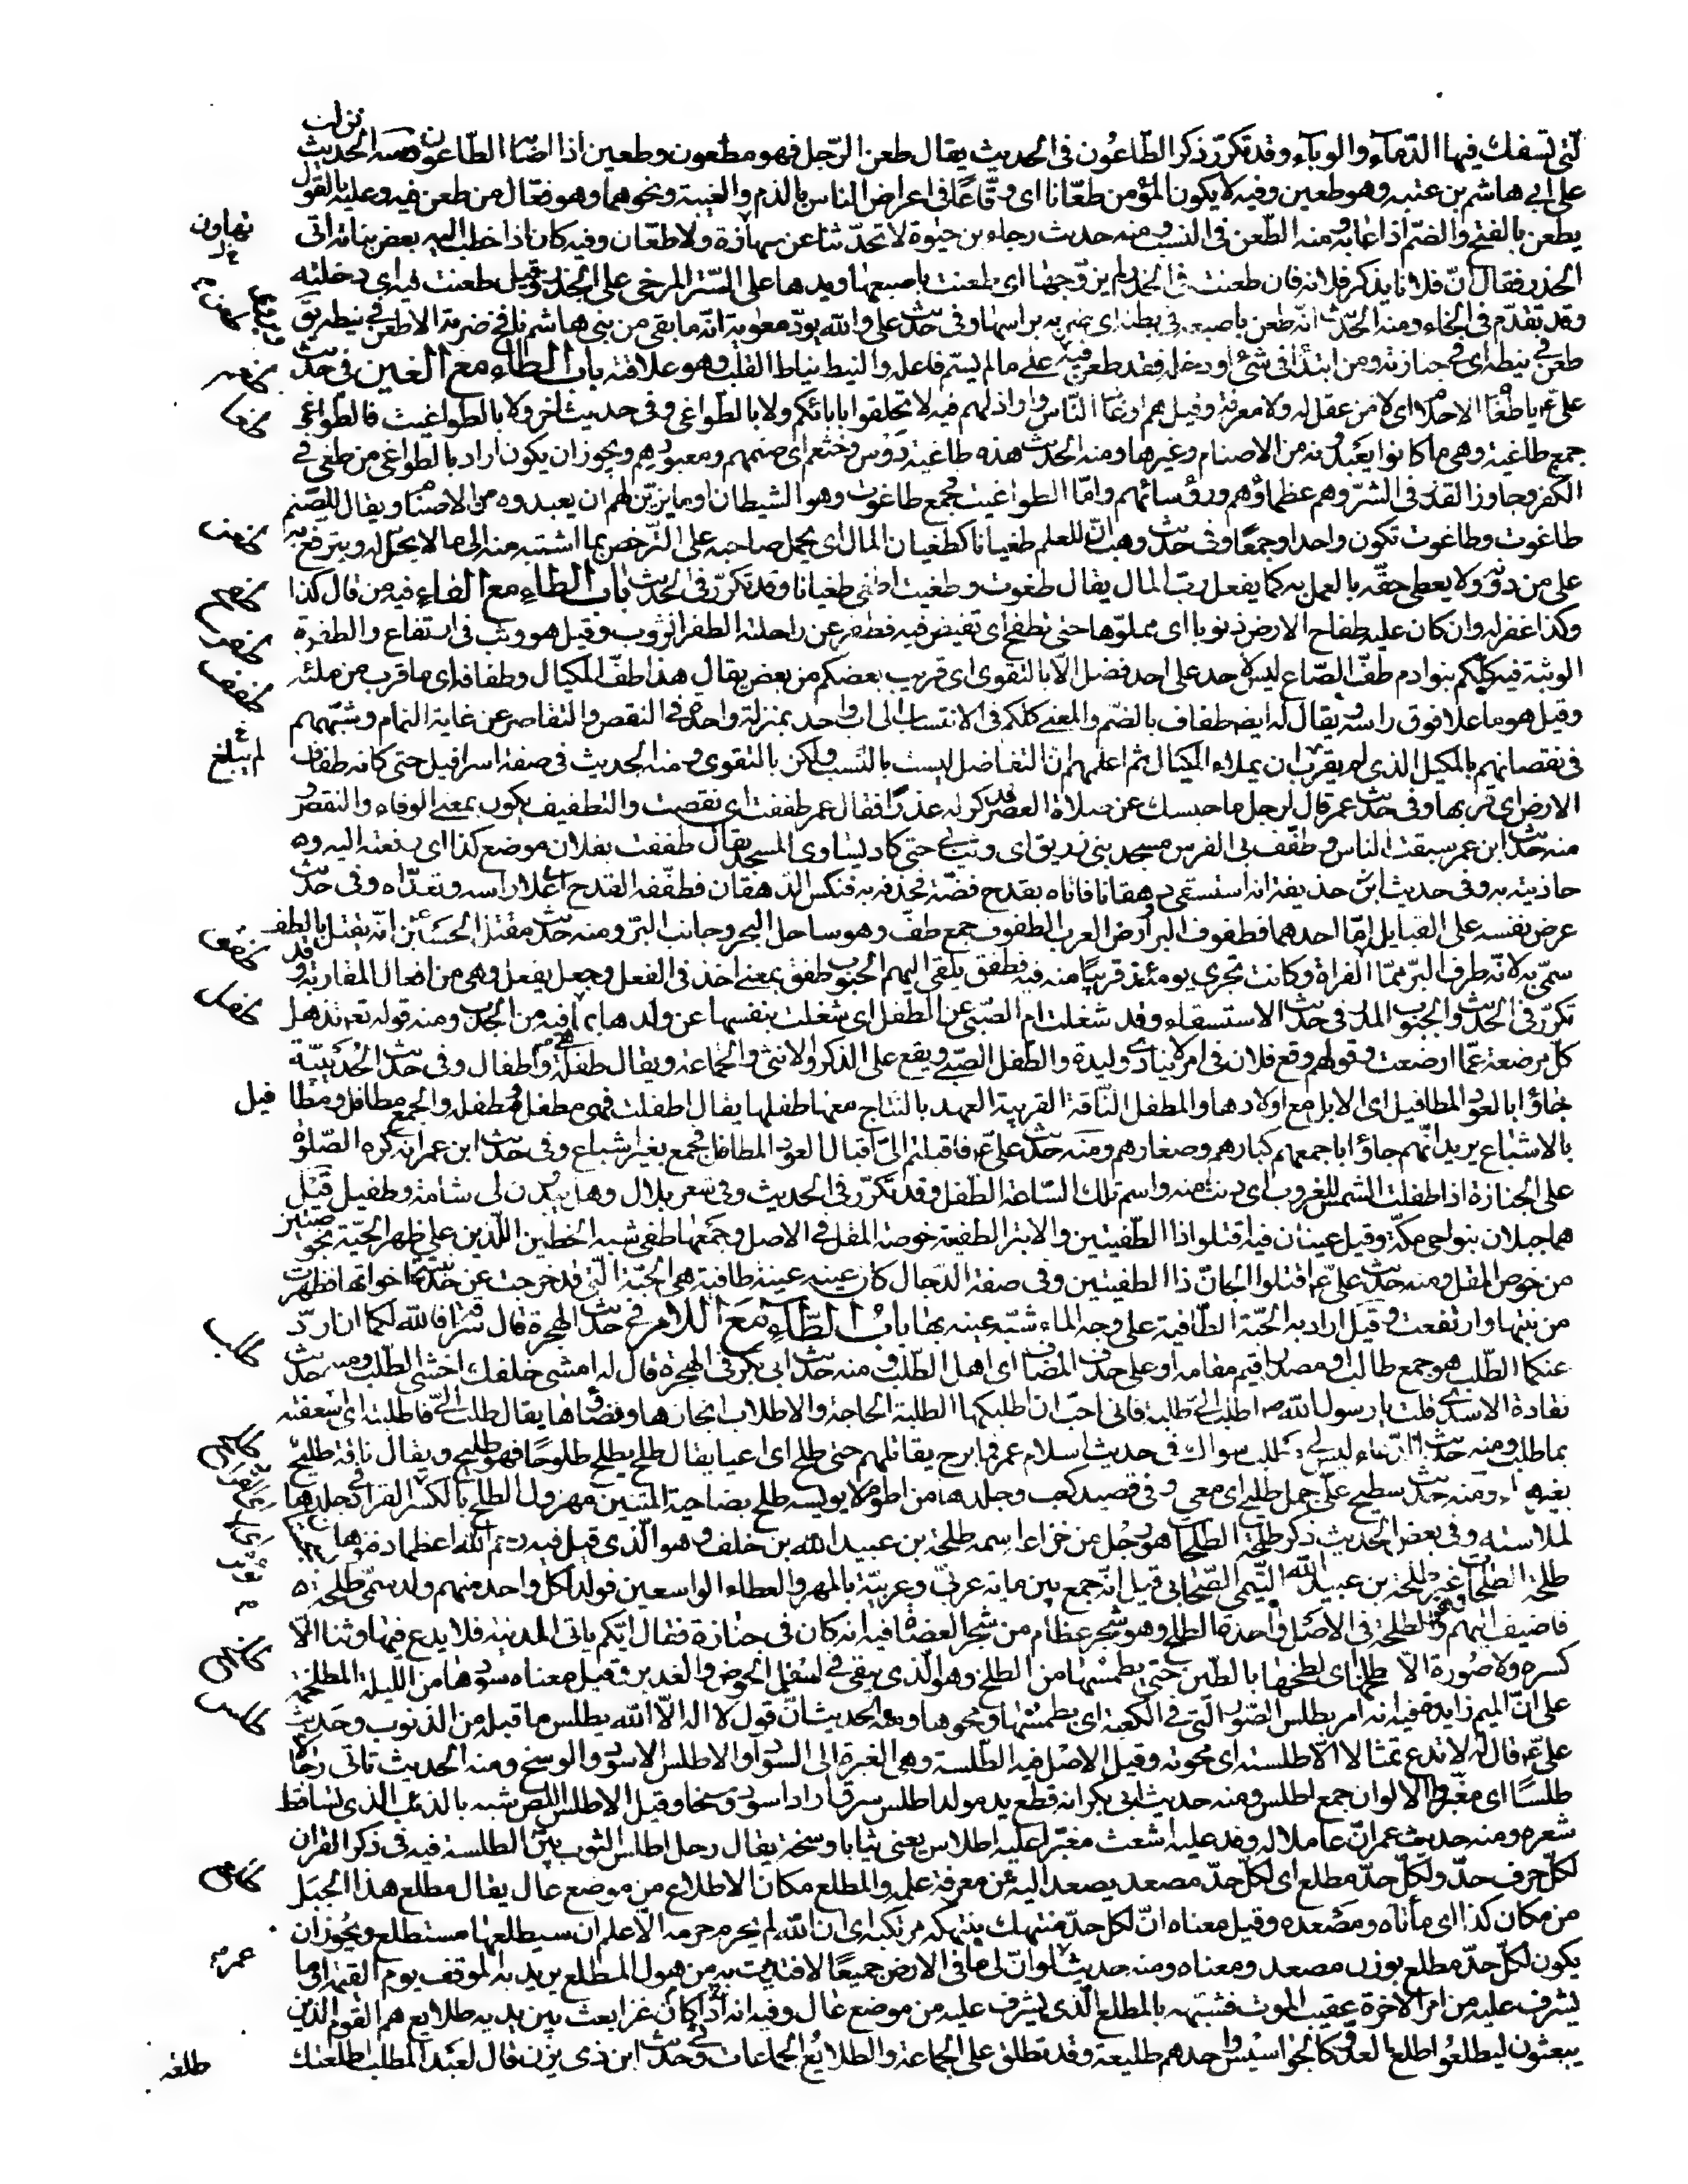 لّتى تسفك فيها الدّماء والوباء وقد تكرّر ذكر الطّاعون فى الحديث يقال طعن الرّجل فهو مطعون وطعين اذا اصابه الطّاعون ومنه الحديث نزلت
على ابى هاشم بن عتبه وهو طعين وفيه لا يكون المؤمن طعّانا اى وقّاعًا فى اعراض الناس بالذم والغيبة ونحوهما وهو فعّال من طعن فيه وعليه بالقول
يطعن بالفتح والضمّ اذا عابه ومنه الطّعن فى النسب ومنه حديث رجاء بن حيوة لا تحدّثنا عن متهارت ولا طعّان وفيه كان اذا خطب اليه بعض بناته اتى
الخدر فقال انّ فلانا يذكر فلانه فان طعنت فى الخدر لم يزوّجها اى طعنت باصبعها ويدها على السّتر المرخى على الخدر وقيل طعنت فيه اى دخلته
وقد تقدّم فى الخاء ومنه الحديث انّه طعن باصبعه فى بطنه اى ضربه براسها وفى حديث على والله لودّ معوية انّه ما بقى من بنى هاشم نافخ ضرمة الا طعن فى نيطه يق
طعن فى نيطه اى فى جنازته ومن ابتدأ فى شئ او دخله فقد طعن فيه على ما لم يسمّ فاعله والنيط نياط القلب وهو علاقته باب الطاء مع الغين فى حديث
على ع يا طغام الاحلام اى لا من عقل له ولا معرفة وقيل هم اوغاد النّاس واراذلهم فيه لا تحلفوا بابائكم ولا بالطّواغى وفى حديث اخر ولا بالطواغيت فالطّواغى
جمع طاغية وهى ما كانوا يعبدونه من الاصنام وغيرها ومنه الحديث هذه طاغية دَوس وخثعم اى صنمهم ومعبودهم ويجوز ان يكون اراد بالطواغى من طغى فى
الكفر وجاوز القدر فى الشرّ وهم عظماؤهم ورؤسائهم وامّا الطواغيت فجمع طاغوت وهو الشيطان او ما يزيّن لهم ان يعبدوه من الاصنام ويقال للصّنم
طاغوت وطاغوت تكون واحدا وجمعًا وفى حديث وهب انّ للعلم طغيانا كطغيان المال اى يحمل صاحبه على التّرخص بما اشتبه منه الى ما لا يحلّ له ويترفّع به
على من دونه ولا يعطى حقّه بالعمل به كما يفعل ربّ المال يقال طغوت وطغيت اطغى طغيانا وقد تكرّر فى الحديث باب الطاء مع الفاء فيه من قال كذا
وكذا غفر له وان كان عليه طفاح الارض ذنوبا اى مملوّها حتى تطفح اى تفيض فيه فطفر عن راحلته الطفر الوثوب وقيل هو وثب فى ارتفاع والطفرة
الوثبة فيه كلّكم بنو ادم طفّ الصّاع ليس لاحد على احد فضل الّا بالتقوى اى قريب بعضكم من بعض يقال هذا طفّ المكيال وطفافه اى ما قرب من ملئه
وقيل هو ما علا فوق راسه ويقال له ايضا طفاف بالضمّ والمعنى كلكم فى الانتساب الى اب واحد بمنزلة واحدة فى النقص والتقاصر عن غاية التمام وشبّههم
فى نقصانهم بالمكيل الذى لم يبلغ ان يملاء المكيال ثم اعلمهم انّ التفاضل ليست بالنّسب ولكن بالتقوى ومنه الحديث فى صفة اسرافيل حتى كانه طفاف
الارض اى قربها وفى حديث عمر قال لرجل ما حبسك عن صلاة العصر فذكر له عذرًا فقال عمر طففت اى نقصت والتطفيف يكون بمعنى الوفاء والنقص و
منه حديث ابن عمر سبقت الناس وطفّف بى الفرس مسجد بنى زريق اى وثب بى حتى كاد يساوى المسجد يقال طففت بفلان موضع كذا اى دفعته اليه و
حاذيته به وفى حديث حذيفة انه استسقى دهقانا فاتاه بقدح فضّة فحذفه به فنكس الدهقان فطفّفه القدح اى علا راسه وتعدّاه وفى حديث
عرض نفسه على القبايل امّا احدهما فطفوف البر وارض العرب الطفوف جمع طفّ وهو ساحل البحر وجانب البرّ ومنه حديث مقتل الحسين ع انّه يقتل بالطف
سمّى به لانّه طرف البرّ ممّا يلى الفراة وكانت تجرى يومئذ قريبًا منه فيه فطفق يلقى اليهم الجبوب طفق بمعنى اخذ فى الفعل وجعل يفعل وهى من افعال المقاربة وقد
تكرّر فى الحديث والجبوب المدر فى حديث الاستسقاء وقد شغلت ام الصّبى عن الطفل اى شغلت بنفسها عن ولدها بما فيه من الجدب ومنه قوله تعالى تذهل
كلّ مرضعة عمّا ارضعت وقولهم وقع فلان فى امر لا ينادى وليده والطّفل الصّبى ويقع على الذكر والانثى والجماعة ويقال طفلة واطفال وفى حديث الحديبيّة
جاؤا بالعوذ المطافيل اى الابل مع اولادها والمطفل النّاقة القريبة العهد بالنتاج معها طفلها يقال اطفلت فهى مطفل ومطفلة والجمع مطافل ومطافيل
بالاشباع يريد انّهم جاؤا باجمعهم كبارهم وصغارهم ومنه حديث على ع فاقبلتم الىّ اقبال العوذ المطافل فجمع بغير اشباع وفى حديث ابن عمر انه كره الصّلوة
على الجنازة اذا طفلت الشمس للغروب اى دنت منه واسم تلك السّاعة الطّفل وقد تكرّر فى الحديث وفى شعر بلال وهل يبدون لى شامة وطفيل قيل
هما جبلان بنواحى مكّة وقيل عينان فيه اقتلوا ذا الطّفيتين والابتر الطفية خوصة المقل فى الاصل وجمعها طفى شبه الخطّين اللّذين على ظهر الحيّة بخوصتين
من خوص المقل ومنه حديث على ع اقتلوا الجانّ ذا الطفيتين وفى صفة الدّجال كان عينه عينة طافية هى الحبّة الّتى قد خرجت عن حدّ نبتة اخواتها فظهرت
من بينها وارتفعت وقيل اراد به الحبّة الطّافية على وجه الماء شبّه عينه بها باب الطّاء مع اللام فى حديث الهجرة قال سراقة فالله لكما ان اردّ
عنكما الطّلب هو جمع طالب او مصدر اقيم مقامه او على حذف المضاف اى اهل الطّلب ومنه حديث ابى بكر فى الهجرة قال له امشى خلفك اخشى الطّلب ومنه حديث
نقادة الاسدى قلت يا رسول الله ص اطلب الىّ طلبة فانى احبّ ان اطلبكها الطلبة الحاجة والاطلاب انجازها وقضاؤها يقال طلب الىّ فاطلبته اى اسعفته
بما طلب ومنه حديث الدّعاء ليس لى مطلب سواك فى حديث اسلام عمر فما برح يقاتلهم حتى طلح اى اعيا يقال طلح يطلح طلوحًا فهو طليح ويقال ناقة طليح
بغير هاء ومنه حديث سطيح على جمل طليح اى معيى وفى قصيد كعب وجلدها من اطوم لا يويسه طلح بضاحية المتنين مهزول الطلح بالكسر القراد فى جلدها
لملاسته وفى بعض الحديث ذكر طلحة الطلحات هو رجل من خزاعة اسمه طلحة بن عبيد الله بن خلف وهو الّذى قيل فيه رحم الله اعظما دفنوها
طلحة الطلحات غير طلحة بن عبيد الله التّيمى الصّحابى قيل انّه جمع بين مايه عربىّ وعربيّة بالمهر والعطاء الواسعين فولد لكل واحد منهم ولد سمّى طلحة
فاضيف اليهم والطلحة فى الاصل واحدة الطلح وهو شجر عظام من شجر العضاه فيه انه كان فى جنازة فقال ايّكم ياتى المدينة فلا يدع فيها وثنا الّا
كسره ولا صورة الّا طلخها اى لطخها بالطّين حتى يطمسها من الطلخ وهو الّذى يبقى فى اسفل الحوض والغدير وقيل معناه سوّدها من الليلة المطلخمّة
على انّ الميم زايدة فيه انه امر بطلس الصّور الّتى فى الكعبة اى بطمسها ومحوها ومنه الحديث انّ قول لا اله الّا الله يطلس ما قبله من الذنوب وحديث
على ع قال له لا تدع تمثالا الّا طلسته اى محوته وقيل الاصل فيه الطّلسة وهى الغبرة الى السّواد والاطلس الاسود والوسخ ومنه الحديث تاتى رجالا
طلسًا اى مغبرّة الالوان جمع اطلس ومنه حديث ابى بكر انه قطع يد مولد اطلس سرق اراد اسود وسخا وقيل الاطلس اللصّ شبه بالذئب الذى تساقط
شعره ومنه حديث عمر انّ عاملا له وفد عليه اشعث مغبّرا عليه اطلاس يعنى ثيابا وسخة يقال رجل اطلس الثوب بيّن الطلسة فيه فى ذكر القران
لكلّ حرف حدّ ولكلّ حدّ مطلع اى لكلّ حدّ مصعد يصعد اليه من معرفة علمه والمطلع مكان الاطلاع من موضع عال يقال مطلع هذا الجبل
من مكان كذا اى مأتاه ومصعده وقيل معناه انّ لكل حدّ منتهك ينتهكه مرتكبه اى ان الله لم يحرم حرمة الّا علم ان سيطلعها مستطلع ويجوز ان
يكون لكلّ حدّ مطلع بوزن مصعد ومعناه ومنه حديث عمر لو انّ لى ما فى الارض جميعًا لافتديت به من هول المطّلع يريد به الموقف يوم القيمة او ما
يشرف عليه من امر الاخرة عقيب الموت فشبّهه بالمطلع الّذى يشرف عليه من موضع عال وفيه انه اذا كان غزا بعث بين يديه طلايع هم القوم الذين
يبعثون ليطلعوا طلع العدوّ كالجواسيس واحدهم طليعة وقد تطلق على الجماعة والطلايع الجماعات وفى حديث ابن ذى يزن قال لعبد المطلب اطلعتك
طلعه